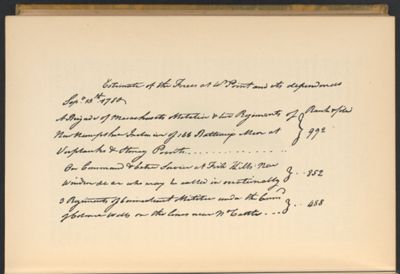 Estimate of the Forces at Wt Point and its dependences
Sepr 13th 1780
A Brigade of Massachusetts Militia & two Regiments of Rank & file
New Hampshire Inclusive of 166 Batteaux Men at 992
Verplanks & Stoney Points
On Command & Extra Service at Fish Kills New 852
Windsor &c &c who may be called in occationally
3 Regiments of Connecticut Militia under the Comd 488
of Colonel Wells on the lines near N. Castle